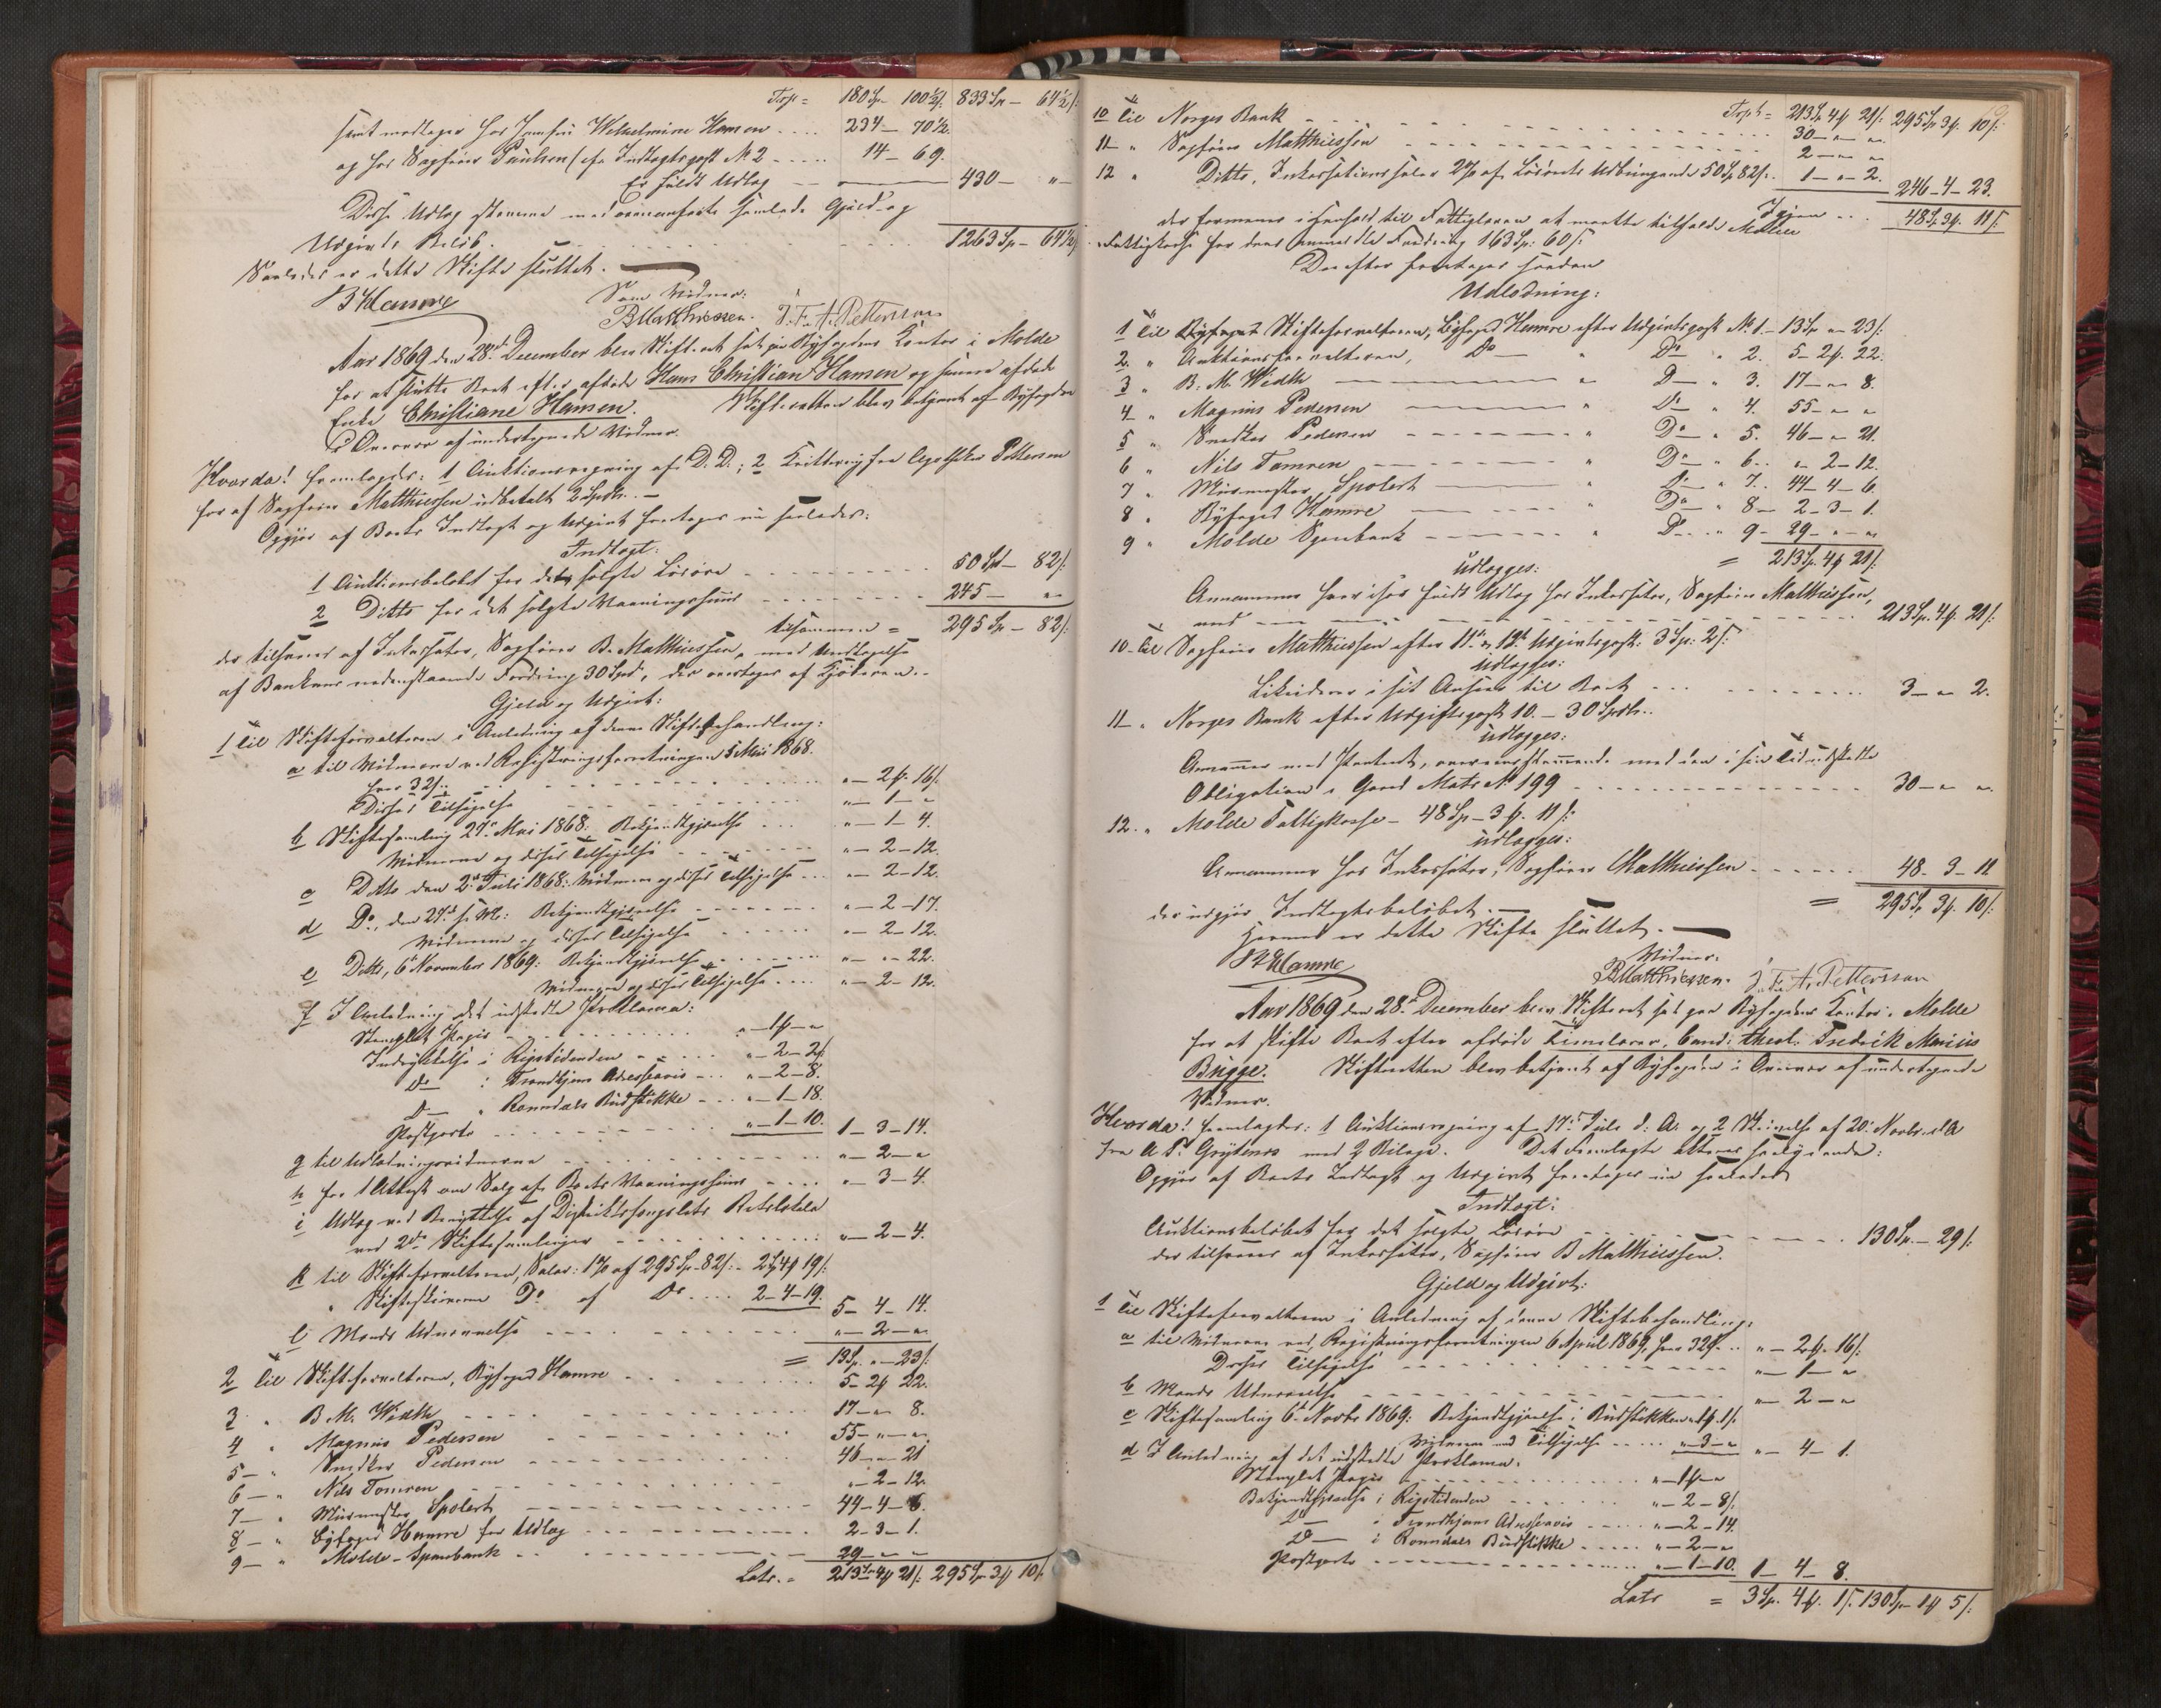 Trsp = 180 Sp - 100½ /: 833 Sp - 64½ /:
samt modtager hos Jomfru Wilhelmine Hansen .... 234 - 70½.
og hos Sagfører Paulsen (cfr Indtægtspost No 2 ..... 14 - 69.
Er fuldt Udlæg — 430 - "
Disse Udlæg stemme med ovenanførte samlede Gjæld og
Udgivts Beløb. 1263 Sp - 64½ /:
Saaledes er dette Skifte sluttet. —
Hamre Som Vidner:
B Matthiessen. J. F. A. Pettersson
Aar 1869 den 28de December blev Skifteret sat paa Byfogdens Kontor i Molde
for at slutte Boet efter afdøde Hans Christian Hansen og hans afdøde
Enke Christiane Hansen. Skifteretten blev betjent af Byfogden
i Overvær af undertegnede Vidner.
Hvorda! fremlagdes: 1 Auktionsregning af D. D.; 2 Kvittering fra Apotheker Pettersen
for af Sagfører Matthiessen udbetalt 2 Spdlr. —
Opgjør af Boets Indtægt og Udgivt foretages nu saaledes:
Indtægt:
1 Auktionsbeløbet for det solgte Løsøre ........ 50 Spd - 82 /:
2 Ditto for det solgte Vaaningshuus ........ 245 — "
tilsammen = 295 Sp - 82 /:
der tilsvares af Inkassator, Sagfører B. Matthiessen, med Undtagelse
af Bankens nedenstaaende Fordring 30 Spd, der overtages af Kjøberen. -
Gjeld og Udgivt:
1 Til Skifteforvalteren i Anledning af denne Skiftebehandling:
a til Vidnerne ved Registreringsforretningen 5 Mai 1868.
hver 32 /: ........ " - 2 /. 16 /.
Disses Tilsigelse " - 1 - "
b Skiftesamling 27de Mai 1868: Bekjendtgjørelse ... " - 1 - 4.
Vidnerne og disses Tilsigelse ........ " - 2 - 12.
c Ditto den 2den Juli 1868: Vidnerne og disses Tilsigelse ... " - 2 - 12.
d Do., den 27de s. M.: Bekjendtgjørelse ....... " - 2 - 17.
Vidnerne og disses Tilsigelse ...... " - 2 - 12.
e Ditto, 6te November 1869: Bekjendtgjørelse ....... " - " - 22.
Vidnerne og disses Tilsigelse .... " - 2 - 12.
f I Anledning det udstedte Proklama:
Stemplet Papir ........ " - 1 /. - "
Indrykkelse i Rigstidenden ...... " - 2 - 2 /.
Do — i Trondhjems Adresseavis ... " - 2 - 8.
Do — " Romsdals Budstikke ... " - 1 - 18.
Postporto ........ " - 1 - 10. 1 - 3 - 14.
g til Udlodningsvidnerne ........ " - 2 - "
h for 1 Attest om Salg af Boets Vaaningshuus .... " - 3 - 4.
i Udlæg ved Benyttelse af Distriktsfængslets Retslokale
ved 2de Skiftesamlinger ........ " - 2 - 4.
k til Skifteforvalteren, Salær: 1% af 295 Sp 82 /: - 2 Sp 4 /. 19 /.
" Skifteskriveren Do af Do .... 2 - 4 - 19. 5 - 4 - 14.
l Mands Udnævnelse ........ " - 2 - "
= 13 Sp. " - 23 /:
2 Til Skifteforvalteren, Byfoged Hamre ........ 5 - 2 /. 22.
3 " B M. Width ........ 17 - " 8.
4 " Magnus Pedersen ........ 55 - " - "
5 - " Snedker Pedersen ........ 46 - " - 21
6 - " Nils Tomren ........ " - 2 - 12.
7 - " Muurmester Spolert ........ 44 - 4 - 6.
8 - " Byfoged Hamre for Udlæg ........ 2 - 3 - 1.
9 - " Molde Sparebank ........ 29 - " - "
Lats. = 213 Sp 4 /. 21 /: 295 Sp 3 /. 10 /.
Trspt = 213 Sp. 4 /. 21 /: 295 Sp. 3 /. 10 /:
10 Til Norges Bank ........ 30 - " "
11 - " Sagfører Matthiessen ........ 2 - " "
12 " Ditto, Inkassationssalær 2% af Løsørets Udbringende 50 Sp 82 /. 1 - " - 2. 246 - 4 - 23.
Igjen .. 48 Sp. 3 /. 11 /:
der formenes i Henhold til Fattigloven at maatte tilfalde Molde
Fattigkasse for dens anmeldte Fordring 163 Sp: 60 /:
Derefter foretages saadan
Udlodning:
1 Til Skifteforvalteren, Byfoged Hamre efter Udgivtspost No 1. - 13 Sp " 23 /:
2. " Auktionsforvalteren, Do — " Do " 2. 5 - 2 /. 22.
3 " B. M. Width ———— " D — " 3. 17 - " 8.
4 " Magnus Pedersen ———— " Do — " 4. 55 - " "
5 " Snedker Pedersen ------- " Do — " 5. 46 - " 21.
6 " Nils Tomren ------- " Do — " 6.. " 2 - 12.
7 " Muurmester Spolert ———— " Do — " 7. 44 - 4 - 6.
8 " Byfoged Hamre ———— " Do — " 8 - 2 - 3 - 1.
9 " Molde Sparebank ------- " Do — " 9 - 29 - " - "
= 213 Sp. 4 /. 21 /.
udlægges:
Annammer hver især fuldt Udlæg hos Inkassator, Sagfører Matthiessen,
med ........ 213 Sp. 4 /. 21 /:
10 - Til Sagfører Matthiessen efter 11te & 12te Udgivtspost: 3 Sp: 2 /:
udlægges:
Likviderer i sit Ansvar til Boet ........ 3 - " 2.
11 - " Norges Bank efter Udgiftspost 10. - 30 Spdlr..
udlægges:
Annammer med Panteret, overensstemmende med den i sin Tid udstedte
Obligation i Gaard Matr No 199 ........ 30 - " "
12. " Molde Fattigkasse - 48 Sp - 3 /. 11 /:
udlægges:
Annammer hos Inkassator, Sagfører Matthiessen ...... 48 - 3 - 11
der udgjør Indtægtsbeløbet. — = 295 Sp 3 /. 10 /:
Hermed er dette Skifte sluttet. —
Hamre Vidner:
B Matthiessen. J. F. A. Pettersson
Aar 1869 den 28de December blev Skifteret sat paa Byfogdens Kontor i Molde
for at skifte Boet efter afdøde Timelærer, Cand: theol. Fredrik Marius
Bugge. Skifteretten blev betjent af Byfogden i Overvær af undertegnede
Vidner.
Hvorda! fremlagdes: 1 Auktionsregning af 17de Juli d: A: og 2 Skrivelse af 20de Novbr. d A
fra A P. Grytnes med 2 Bilage. Det Fremlagte akteres saalydende:
Opgjør af Boets Indtægt og Udgivt foretages nu saaledes
Indtægt:
Auktionsbeløbet for det solgte Løsøre ........ 130 Sp. - 29 /:
der tilsvares af Inkassator, Sagfører B Matthiessen.
Gjeld og Udgivt:
1 Til Skifteforvalteren i Anledning af denne Skiftebehandling:
a til Vidnerne ved Registreringsforretningen 6 April 1869, hver 32 /. .. " - 2 /. 16 /:
Disses Tilsigelse ........ " - 1 - "
b Mands Udnævnelse ........ " - 2 - "
c Skiftesamling 6te Novbr 1869: Bekjendtgjørelse i Budstikken " 1 /. 1 /.
Vidnerne med Tilsigelse ..... " - 3 - " " - 4 - 1.
d I Anledning af det udstedte Proklama.
Stemplet Papir ........ " - 1 /. - "
Bekjendtgjørelse i Rigstidenden ....... " - 2 - 8 /.
Do — i Trondhjems Adresseavis ..... " - 2 - 14.
Do — i Romsdals Budstikke ..... " - 2 - "
Postporto ........ " - 1 - 10. 1 - 4 - 8.
Lats = 3 Sp. 4 /. 1 /. 130 Sp - 1 /. 5 /: